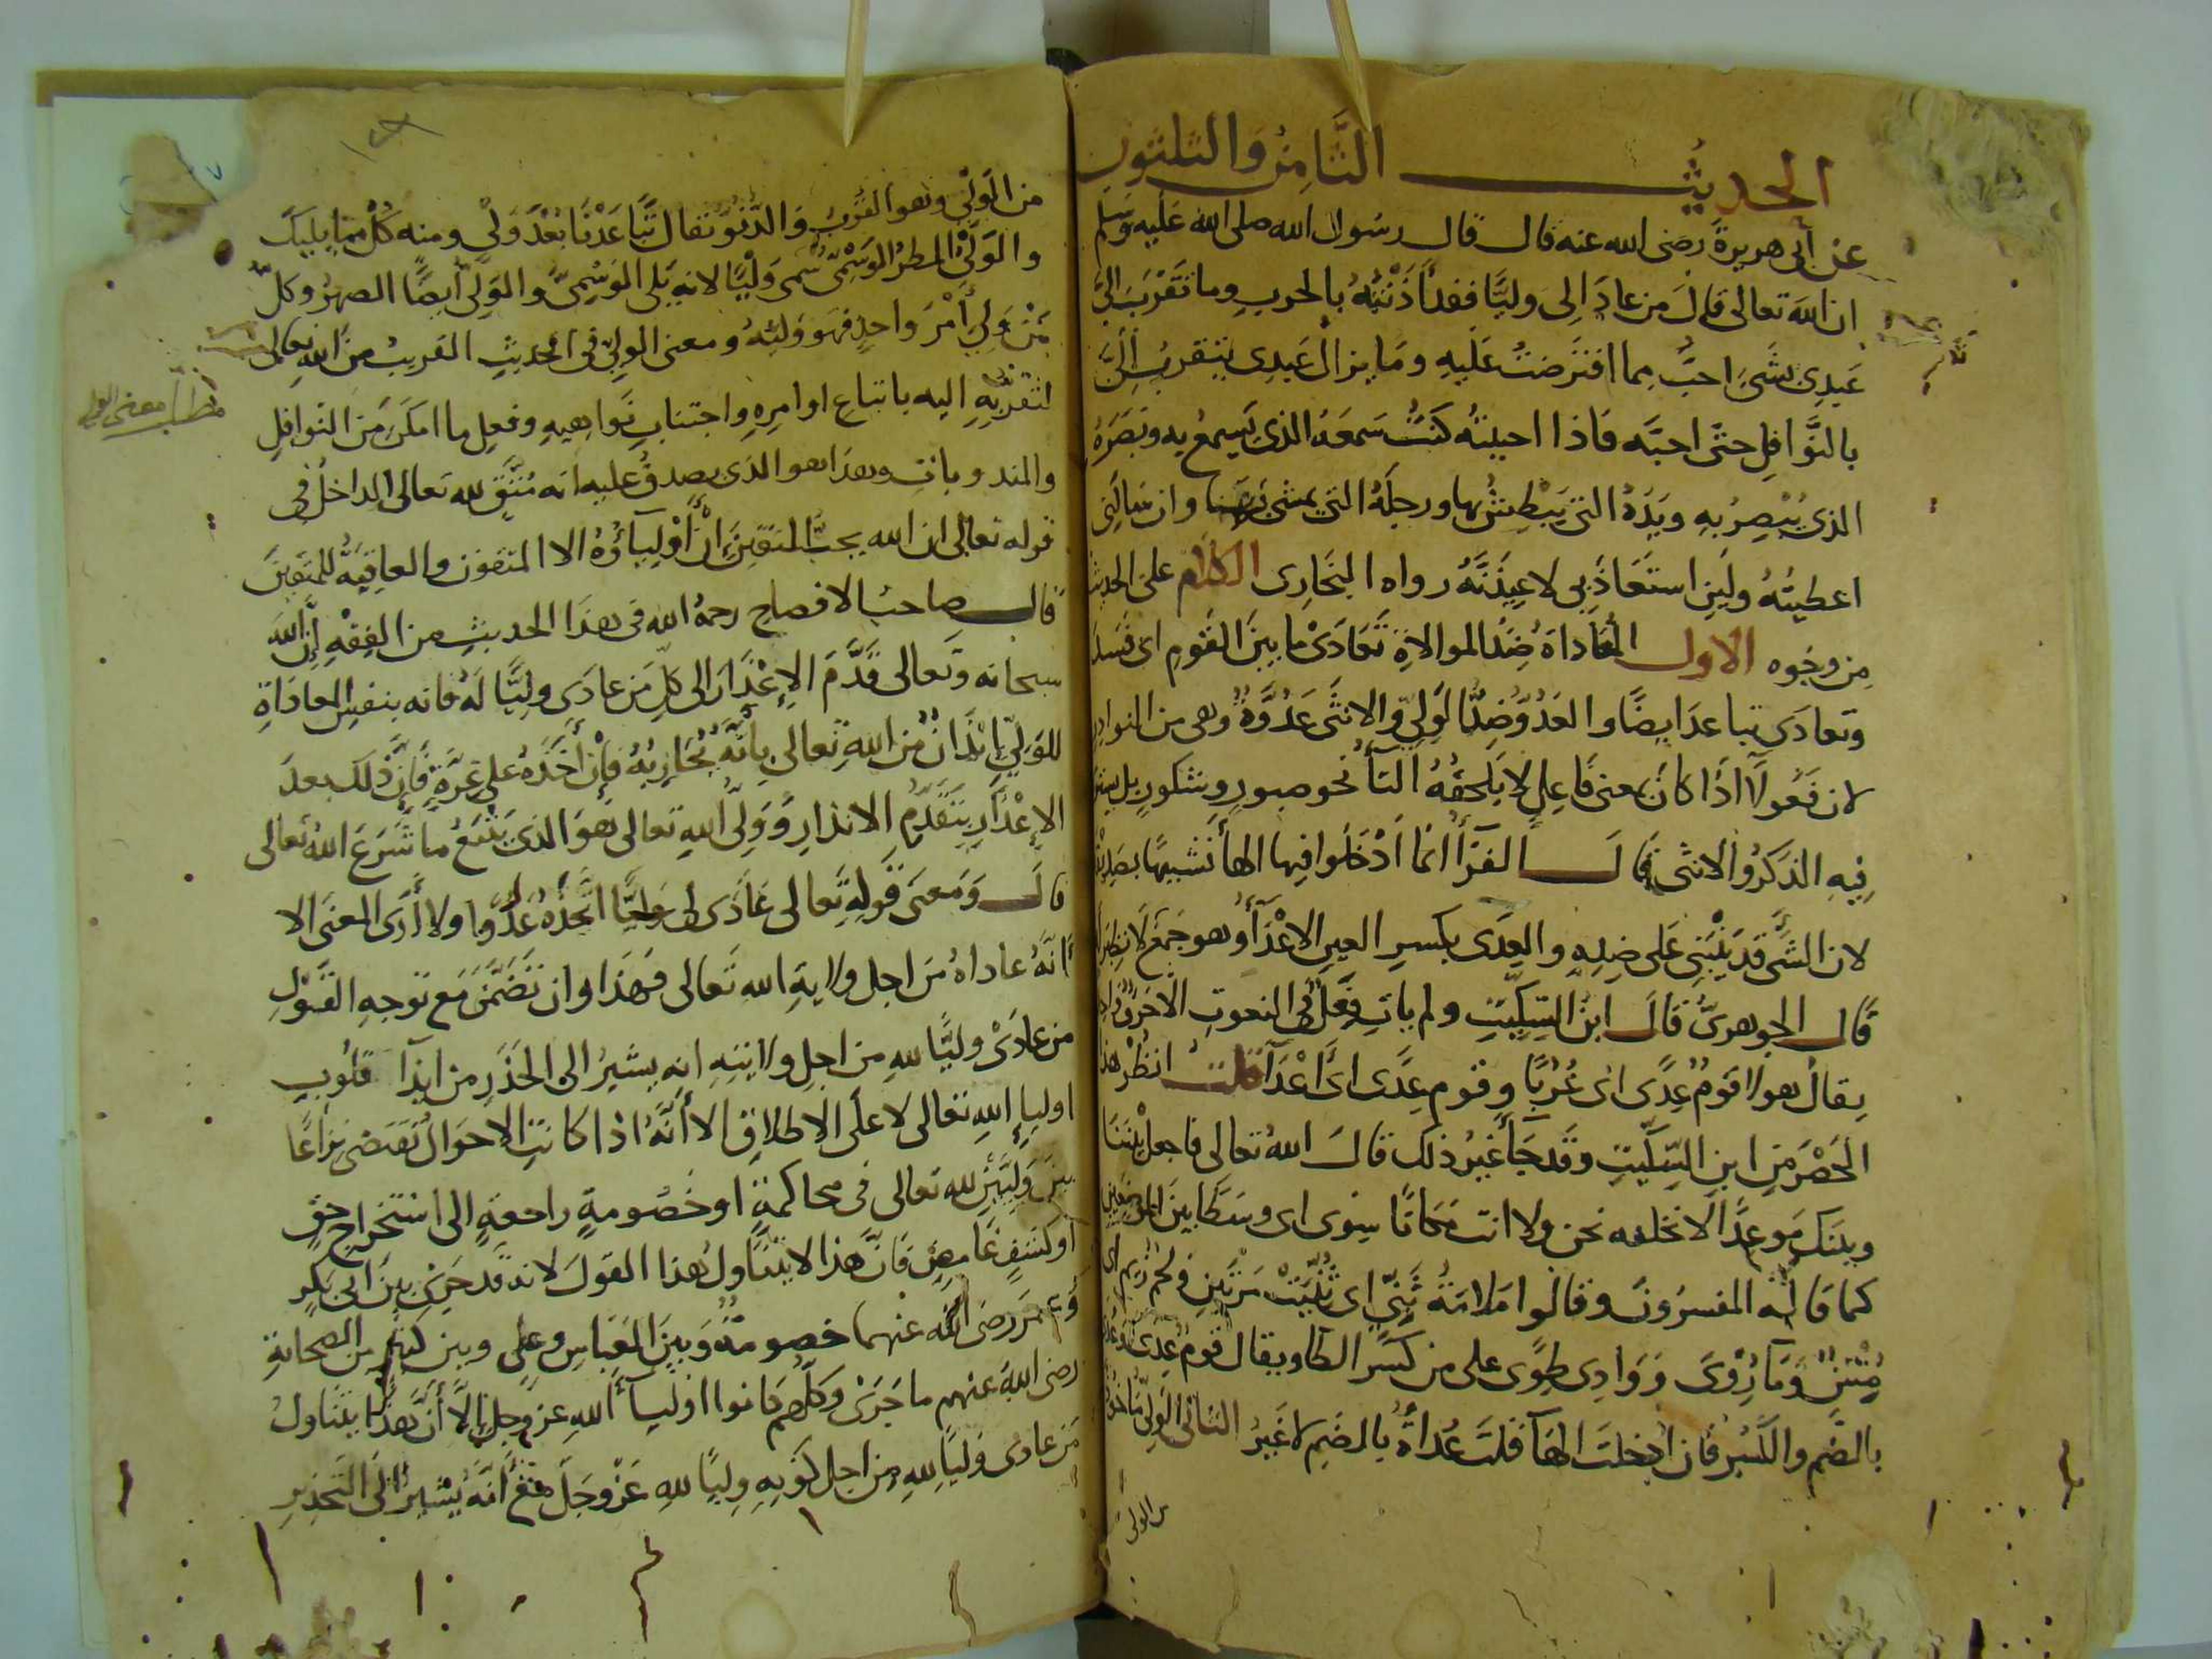 الحديث الثامن والثلثون
عن أبى هريرة رضى الله عنه قال قال رسول الله صلى الله عليه وسلم
ان الله تعالى قال من عادى لى وليًا فقد أذنته بالحرب وما تقرب الى
عبدى بشئ احب مما افترضت عليه وما يزال عبدى يتقرب الى
بالنوافل حتى احبه فاذا احببته كنت سمعه الذى يسمع به وبصره
الذى يبصر به ويده التى يبطش بها ورجله التى يمشى بها وان سالنى
اعطيته ولين استعاذ بى لاعيذنه رواه البخارى الكلام على الحديث
من وجوه الاول المعاداة ضد الموالاة تعادى ما بين القوم اى فسد
وتعادى تباعد ايضا والعدو ضد الولى والانثى عدوة وهى من النوادر
لان فعولا اذا كان بمعنى فاعل لا يلحقه التأ نحو صبور وشكور بل
فيه الذكر والانثى قال الفرأ انما ادخلوا فيها الهأ تشبيها بصديقة
لان الشئ قد يبنى على ضده والعدى بكسر العين الاعدأ وهو جمع لا نظير
قال الجوهرى قال ابن السكيت ولم يات فعل فى النعوت الا حرف
يقال هولا قوم عدى اى غربا وقوم عدى اى أعدآ قلت انظر هذا
الحصر من ابن السكيت وقد جأ غير ذلك قال الله تعالى فاجعل بيننا
وبينك موعدا لا نخلفه نحن ولا انت مكانا سوى اى وسطا بين الموضعين
كما قاله المفسرون وقالوا ملامة ثنى اى ثنيت مرتين ولحم زيم اى
ومآ روى ووادى طوى على من كسر الطا ويقال قوم عدى
بالضم والكسر فان ادخلت الهآ قلت عداة بالضم لا غير الثانى الولى ماخوذ
من الولى
من الولى وهو القرب والدنو تقال تباعدنا بعد ولى ومنه كل مما يليك
والولى المطر الوسمى سمى وليا لانه يلى الوسمى والولى أيضا الصهر وكل
من ولى أمر واحد فهو وليه ومعنى الولى فى الحديث القريب من الله تعالى
مطلب معنى الولى
لتقربه اليه باتباع اوامره واجتناب نواهيه وفعل ما امكن من النوافل
والمندوبات وهذا هو الذى يصدق عليه انه متق لله تعالى الداخل فى
قوله تعالى ان الله يحب المتقين ان أوليآؤه الا المتقون والعاقبة للمتقين
قال صاحب الافصاح رحمه الله فى هذا الحديث من الفقه إن الله
سبحانه وتعالى قدم الإعذار الى كل من عادى وليا له فانه بنفس المعاداة
للولى إيذان من الله تعالى بأنه محاربه فإن أخذه على غرة فإن ذلك بعد
الإعذار بتقدم الانذار وولى الله تعالى هو الذى يتبع ما شرع الله تعالى
قال ومعنى قوله تعالى عادى لى وليا اتخذه عدوا ولا أرى المعنى الا
أنه عاداه من اجل ولاية الله تعالى فهذا وان تضمن مع توجه القول
من عادى وليا لله من اجل ولايته انه يشير الى الحذر من ايذآ قلوب
اوليإ الله تعالى لا على الاطلاق الا أنه اذا كانت الاحوال تقتضى نزاعا
بين وليين لله تعالى فى محاكمة او خصومة راجعة الى استخراج حق
او كشف غامض فان هذا لا يتناول هذا القول لانه قد جرى بين ابى بكر
وعمر رضى الله عنهما خصومة وبين العباس وعلى وبين كثير من الصحابة
رضى الله عنهم ما جرى وكلهم كانوا اوليآ الله عز وجل إلا أن هذا يتناول
من عادى وليا لله من اجل كونه وليا لله عز وجل مع أنه يشير الى التحذير